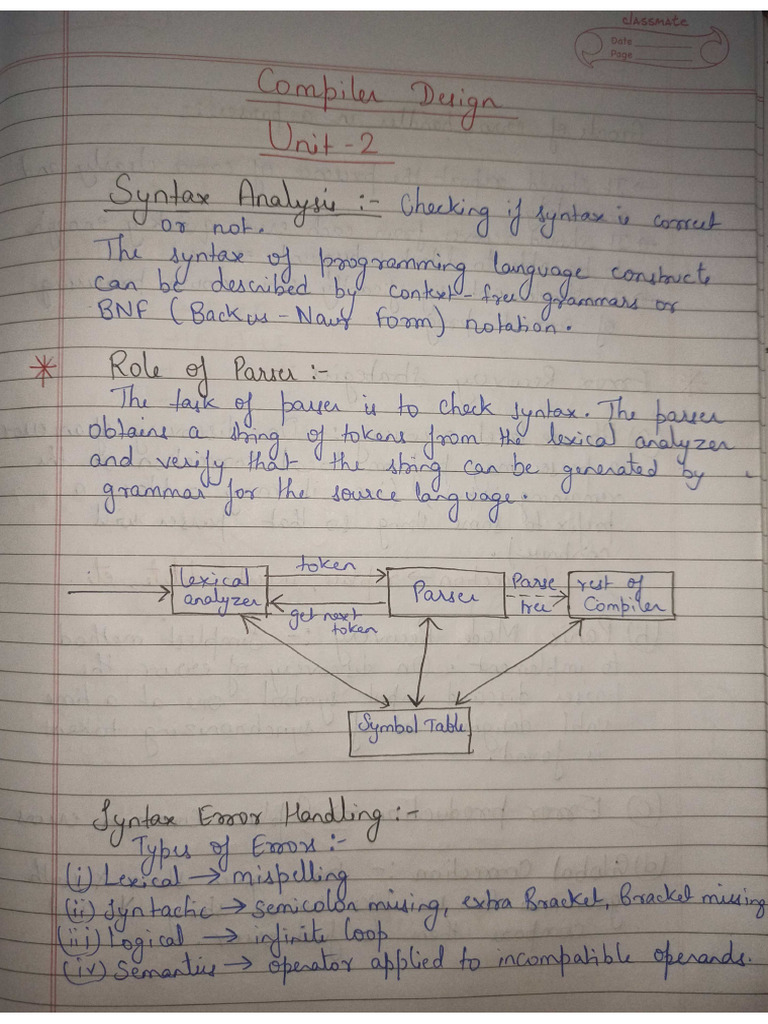 classmate
Date
Page
Compiler Design
Unit-2
Syntax Analysis :- Checking if syntax is correct
or not.
The syntax of programming language constructs
can be described by context-free grammars or
BNF (Backus-Naur Form) notation.
* Role of Parser :-
The task of parser is to check syntax. The parser
obtains a string of tokens from the lexical analyzer
and verify that the string can be generated by
grammar for the source language.
token
lexical
analyzer
get next
token
Parser
Parse
tree
rest of
Compiler
Symbol Table
Syntax Error Handling :-
Types of Errors :-
(i) Lexical → mispelling
(ii) Syntactic → semicolon missing, extra Bracket, Bracket missing
(iii) Logical → infinite loop
(iv) Semantics → operator applied to incompatible operands.